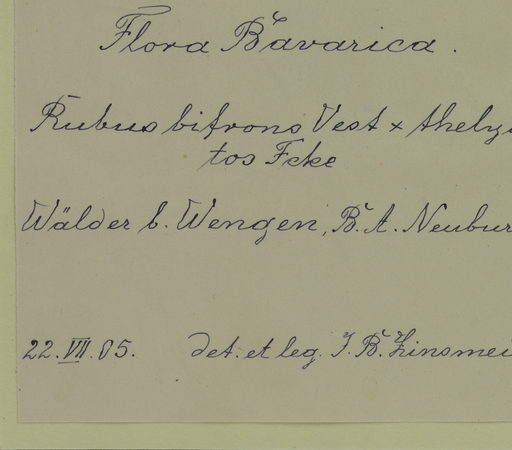 Flora Bavarica.
Rubus bifrons Vest × thely
tos Fcke
Wälder b. Wengen, B. A. Neubur
22. VII. 05. det. et leg. J. B. Zinsmei